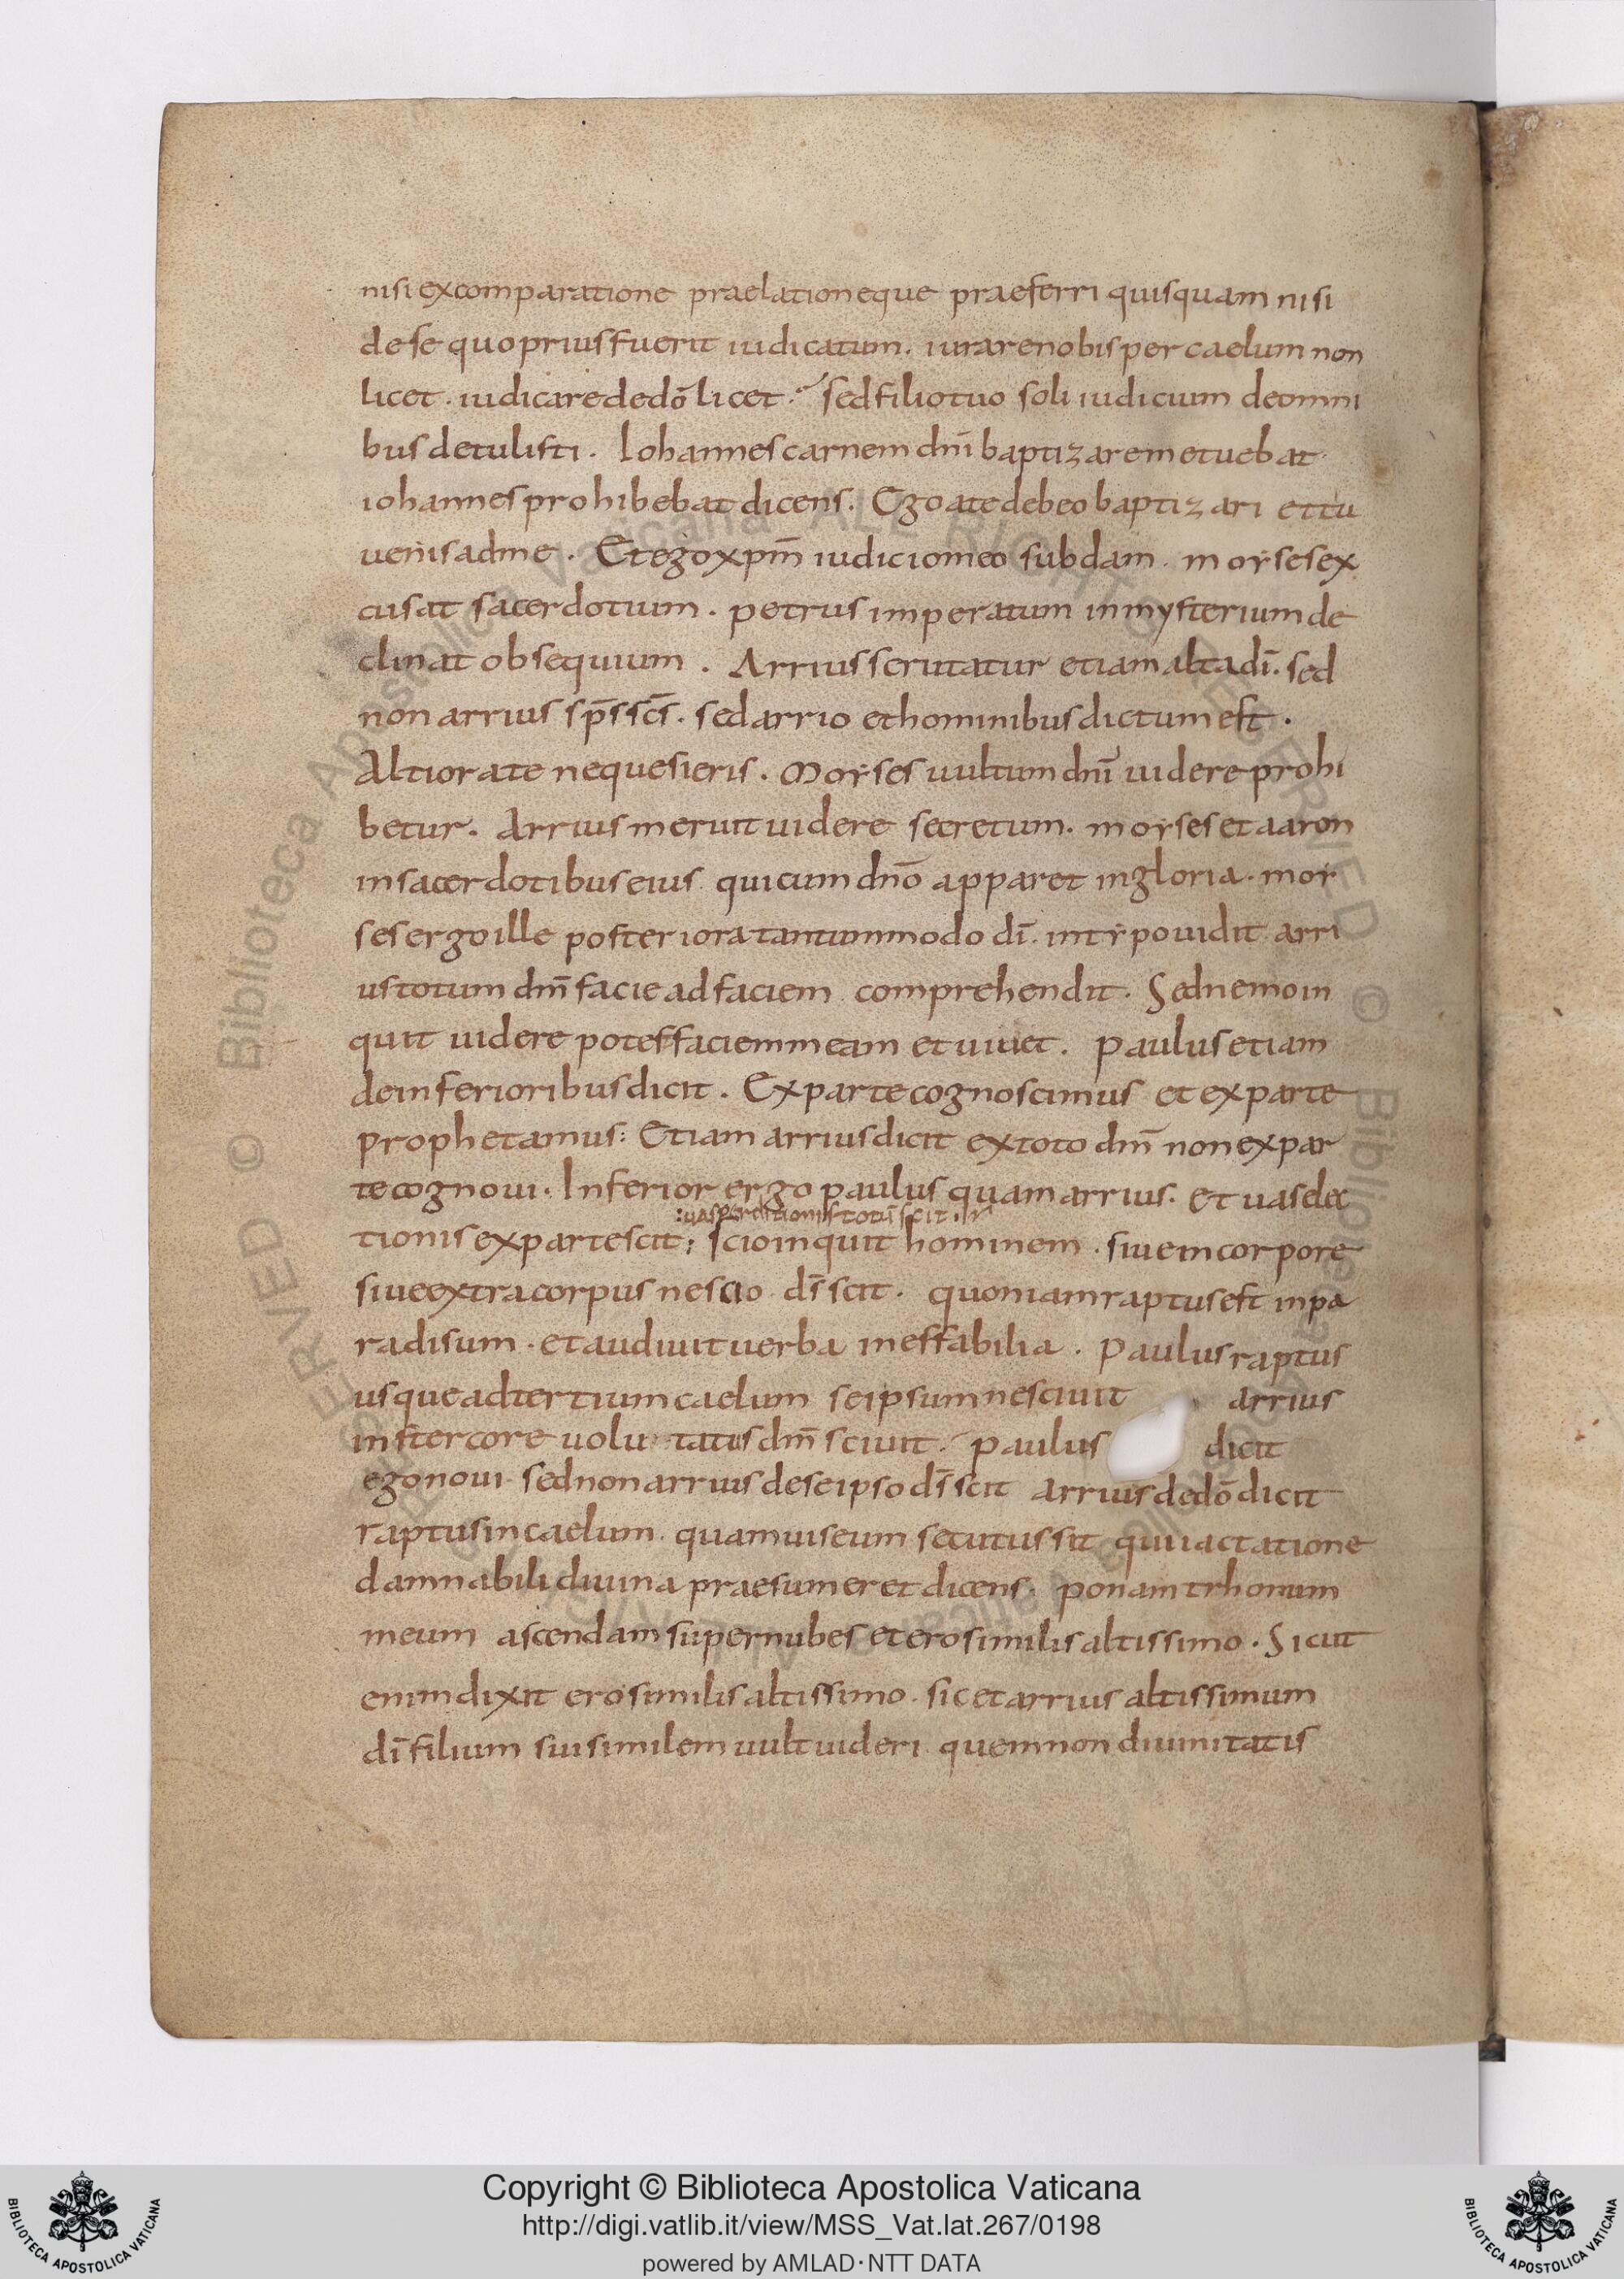 nisi ex comparatione praelationeque praeferri quisquam nisi
de se quo prius fuerit iudicatum. iurare nobis per caelum non
licet. iudicare de dō licet. sed filio tuo soli iudicium de omni
bus detulisti. Iohannes carnem dnī baptizare metuebat.
iohannes prohibebat dicens. Ego a te debeo baptizari et tu
uenis ad me. Et ego xpm̄ iudicio meo subdam. moyses ex
cusat sacerdotium. petrus imperatum in mysterium de
clinat obsequium. Arrius scrutatur etiam alta dī. sed
non arrius sp̄s sc̄s. sed arrio et hominibus dictum est.
Altiora te ne quesieris. Moyses uultum dnī uidere prohi
betur. Arrius meruit uidere secretum. moyses et aaron
in sacerdotibus eius qui cum dnō apparet in gloria. moy
ses ergo ille posteriora tantummodo dī. in typo uidit arri
us totum dm̄ facie ad faciem comprehendit. Sed nemo in
quit uidere potest faciem meam et uiuet. Paulus etiam
de inferioribus dicit. Ex parte cognoscimus et ex parte
prophetamus: Etiam arrius dicit ex toto dm̄ non ex par
te cognoui. Inferior ergo paulus quam arrius. et uas elec
:uas perditionis totū scit.
tionis ex parte scit: scio inquit hominem. siue in corpore
siue extra corpus nescio ds̄ scit. quoniam raptus est in pa
radisum. et audiuit uerba ineffabilia. Paulus raptus
usque ad tertium caelum se ipsum nesciuit arrius
in stercore uolu tatus dm̄ sciuit. paulus dicit
ego noui sed non arrius de se ipso ds̄ scit arrius de dō dicit
raptus in caelum. quamuis eum secutus sit qui iactatione
damnabili diuina praesumeret dicens. ponam trhonum
meum ascendam super nubes et ero similis altissimo. Sicut
enim dixit ero similis altissimo. sic et arrius altissimum
dī filium sui similem uult uideri quem non diuinitatis
Copyright © Biblioteca Apostolica Vaticana
http://digi.vatlib.it/view/MSS_Vat.lat.267/0198
powered by AMLAD·NTT DATA
BIBLIOTECA APOSTOLICA VATICANA
BIBLIOTECA APOSTOLICA VATICANA